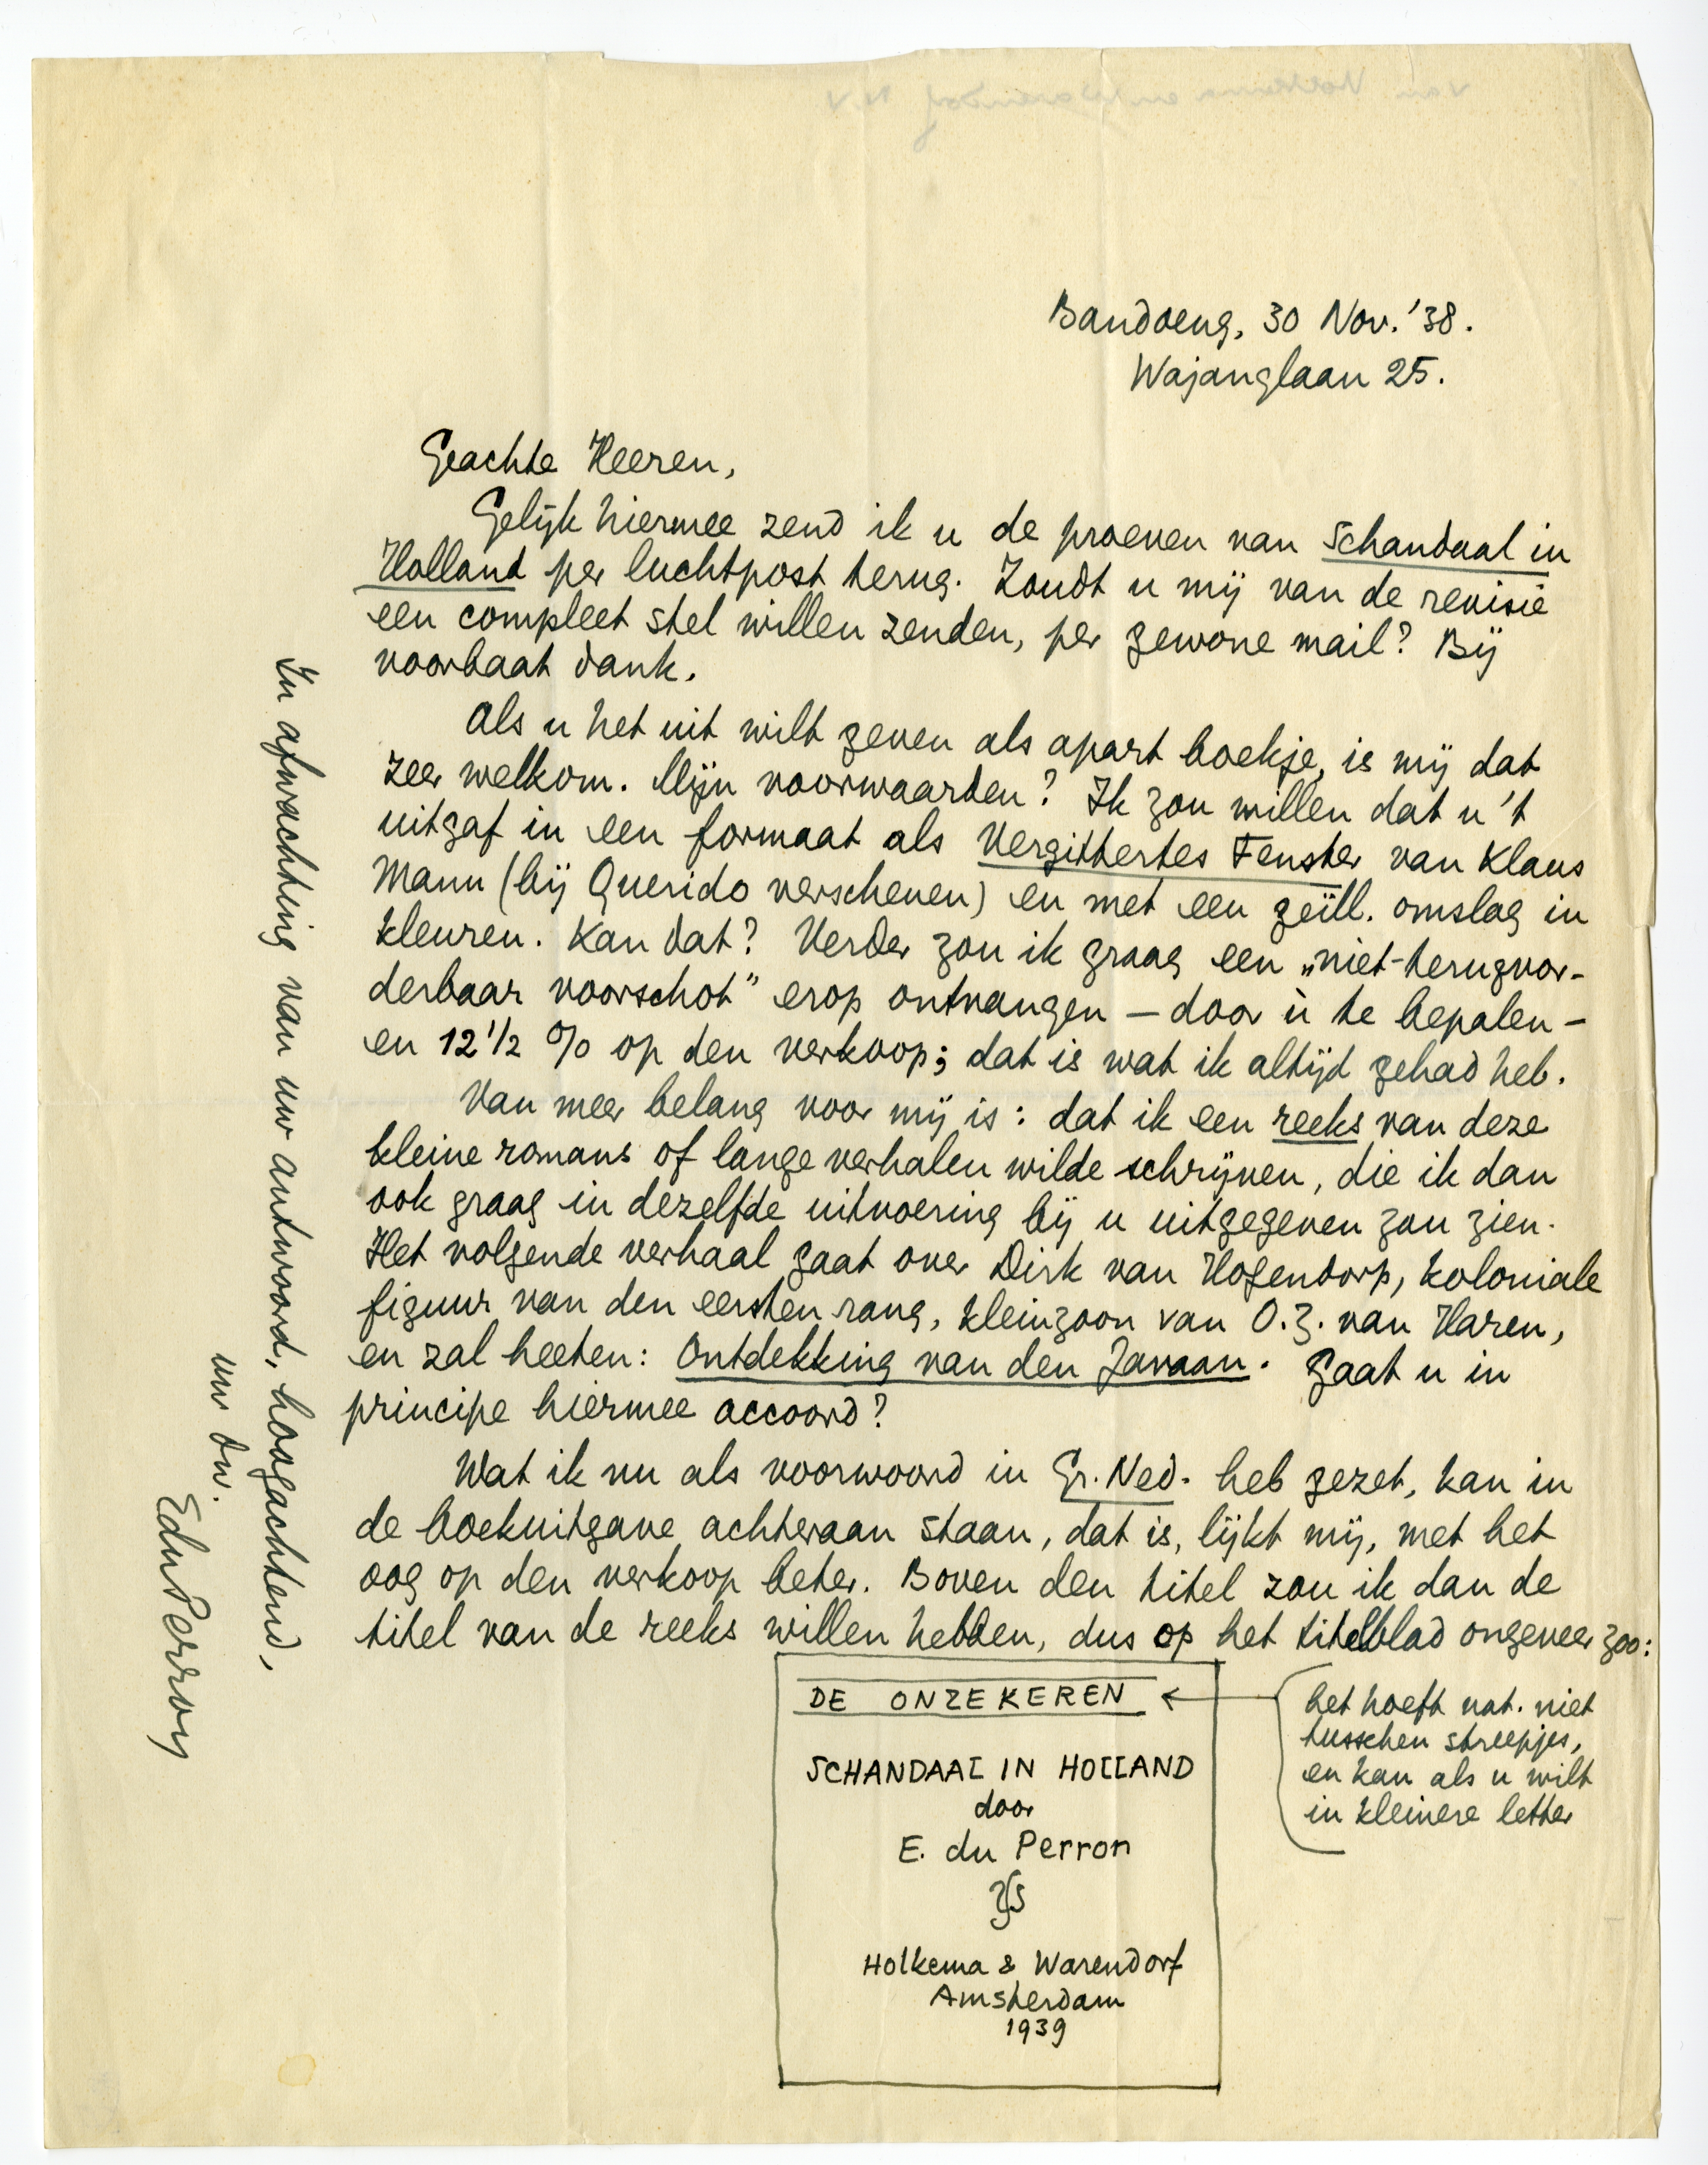 Bandoeng, 30 Nov. '38.
Wajanglaan 25.
Geachte Heeren,
Gelijk hiermee zend ik u de proeven van Schandaal in
Holland per luchtpost terug. Zoudt u mij van de revisie
een compleet stel willen zenden, per gewone mail? Bij
voorbaat dank.
Als u het uit wilt geven als apart boekje, is mij dat
zeer welkom. Mijn voorwaarden? Ik zou willen dat u 't
uitgaf in een formaat als Vergittertes Fenster van Klaus
Mann (bij Querido verschenen) en met een geïll. omslag in
kleuren. Kan dat? Verder zou ik graag een „niet-terugvor-
derbaar voorschot" erop ontvangen — door ù te bepalen —
en 12 1/2 % op den verkoop; dat is wat ik altijd gehad heb.
Van meer belang voor mij is: dat ik een reeks van deze
kleine romans of lange verhalen wilde schrijven, die ik dan
ook graag in dezelfde uitvoering bij u uitgegeven zou zien.
Het volgende verhaal gaat over Dirk van Hogendorp, koloniale
figuur van den eersten rang, kleinzoon van O.Z. van Haren,
en zal heeten: Ontdekking van den Javaan. Gaat u in
principe hiermee accoord?
Wat ik nu als voorwoord in Gr. Ned. heb gezet, kan in
de boekuitgave achteraan staan, dat is, lijkt mij, met het
oog op den verkoop beter. Boven den titel zou ik dan de
titel van de reeks willen hebben, dus op het titelblad ongeveer zoo:
DE ONZEKEREN
SCHANDAAL IN HOLLAND
door
E. du Perron
Holkema & Warendorf
Amsterdam
1939
het hoeft nat. niet
tusschen streepjes,
en kan als u wilt
in kleinere letter
In afwachting van uw antwoord, hoogachtend,
uw dw.
EduPerron
van Holkema en Warendorf N.V